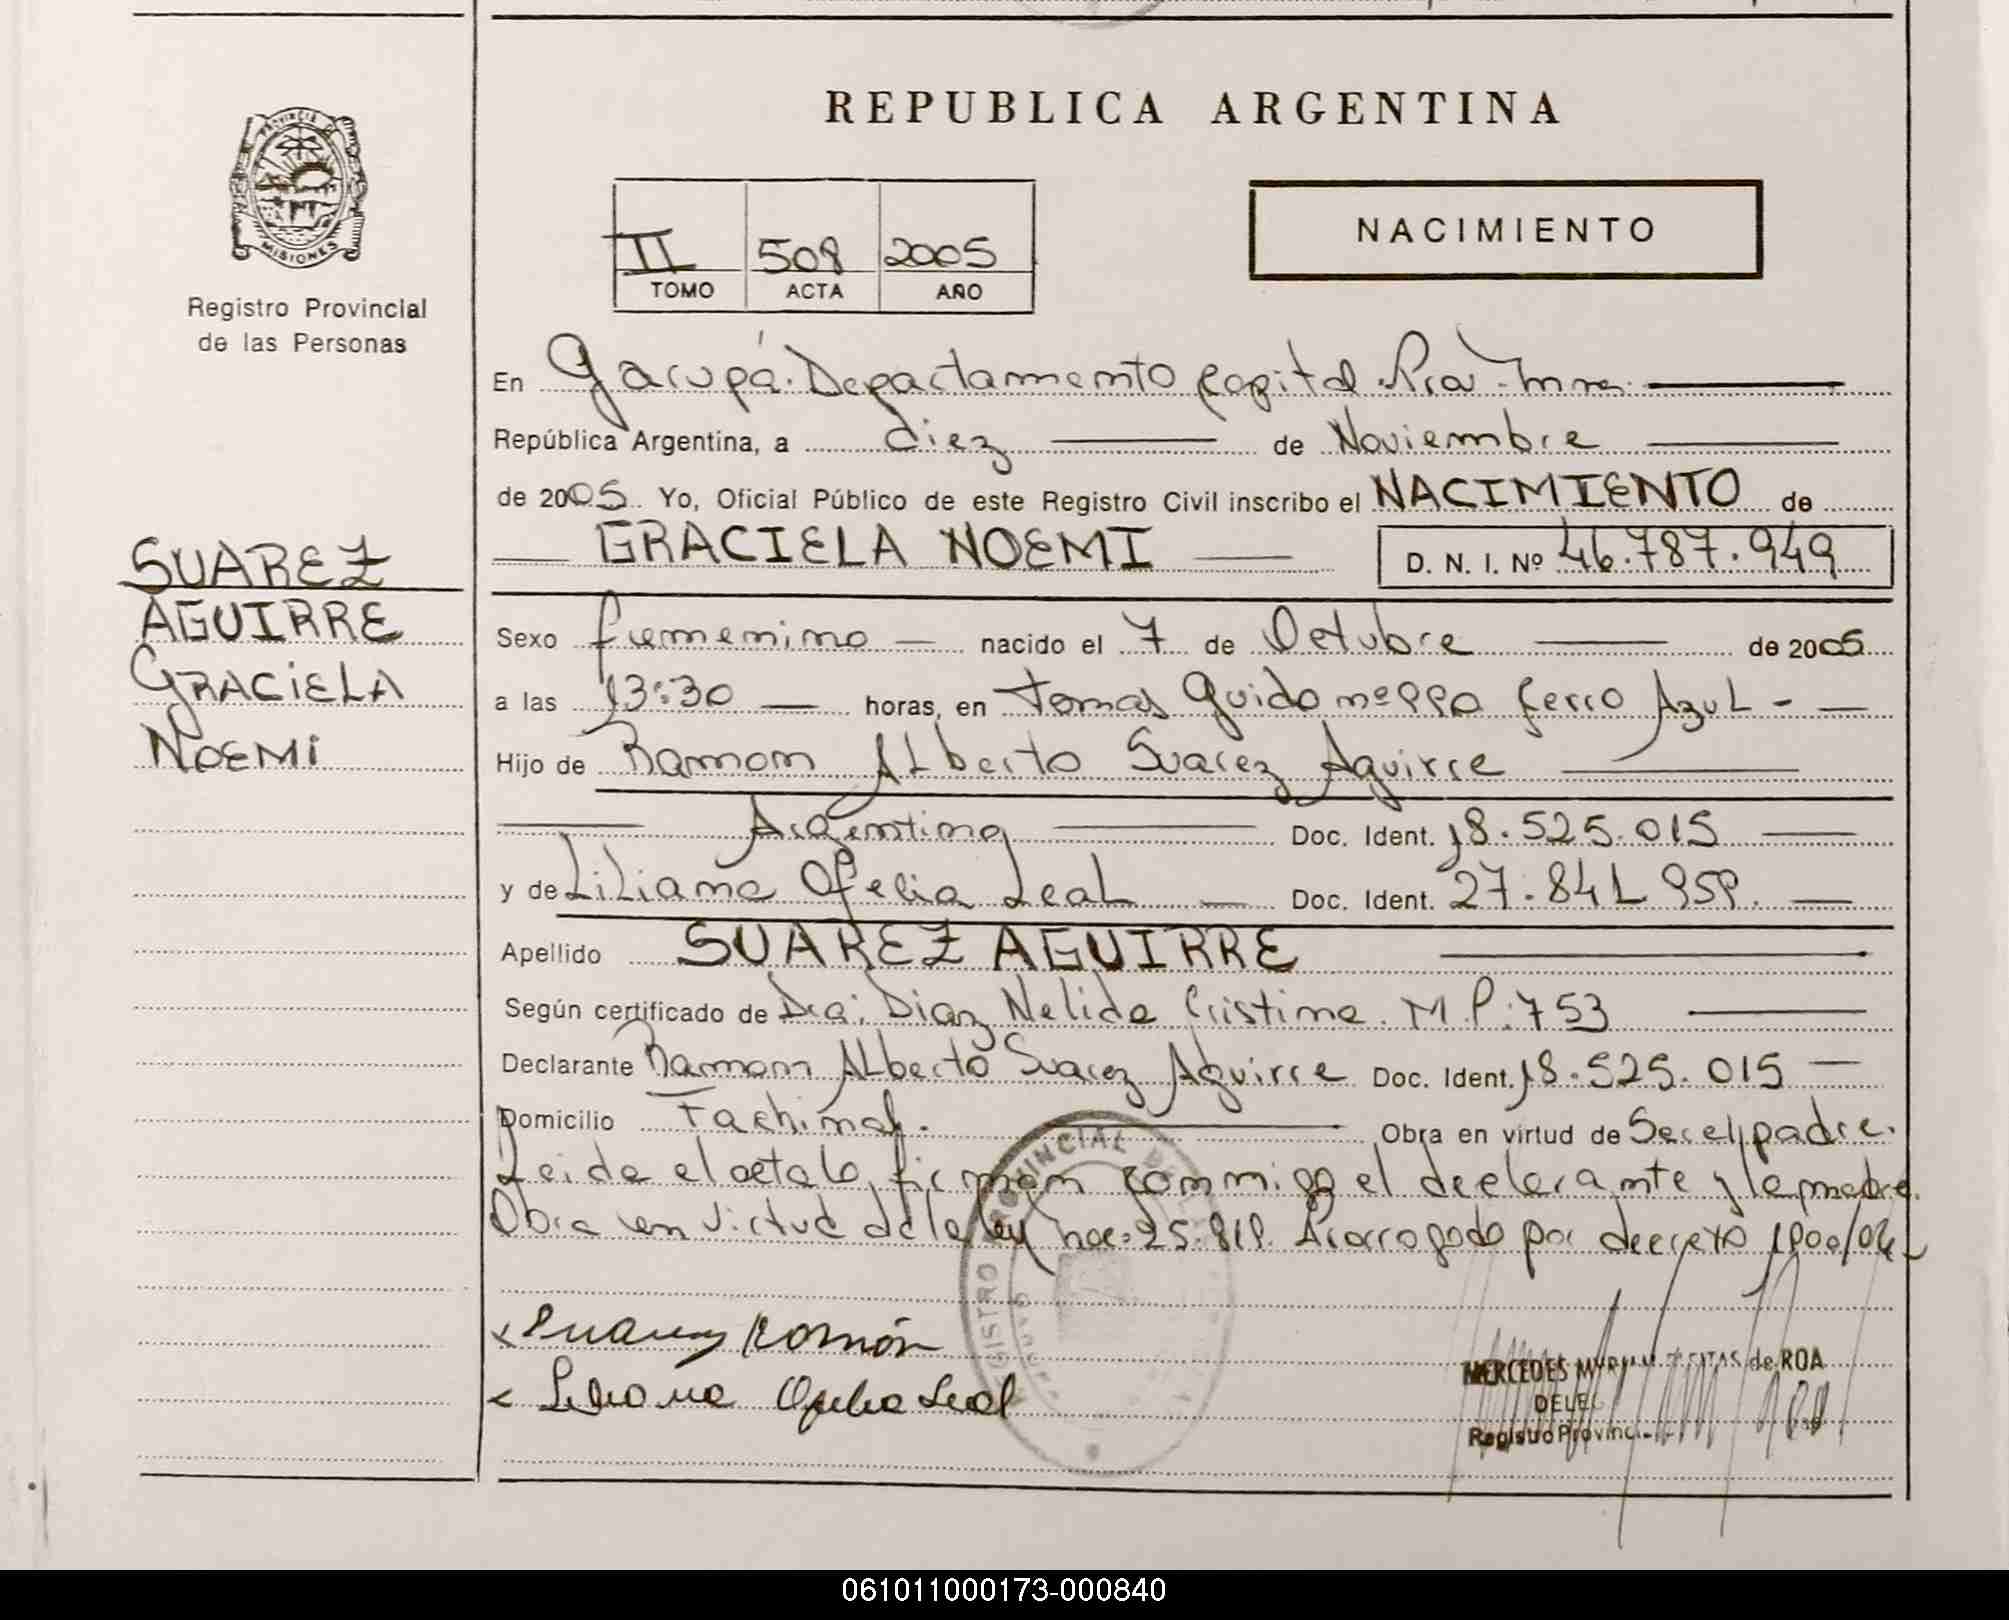 REPUBLICA ARGENTINA
PROVINCIA DE
MISIONES
Registro Provincial
de las Personas
NACIMIENTO
II 508 2005
TOMO ACTA AÑO
En Garupá. Departamento Capital
República Argentina, a diez de Noviembre
de 2005 Yo, Oficial Público de este Registro Civil inscribo el NACIMIENTO de
GRACIELA NOEMI D. N. I. Nº 46.787.949
SUAREZ
AGUIRRE
GRACIELA
NOEMI
Sexo femenino nacido el 7 de Octubre de 2005
a las 13:30 horas, en Tomas Guido ferro Azul
Hijo de Ramon Alberto Suarez Aguirre
Argentino Doc. Ident. 18.525.015
y de Liliana Ofelia Leal Doc. Ident. 27.841.959
Apellido SUAREZ AGUIRRE
Según certificado de Dra: Diaz Nelida Cristina. M.P:753
Declarante Ramon Alberto Suarez Aguirre Doc. Ident. 18.525.015
Domicilio Fachinal. Obra en virtud de Ser el padre.
Leida el acta la firman conmigo el declarante y la madre.
Obra en virtud de la ley nro: 25.819. por decreto
Suarez Ramón
Liliana Ofelia Leal
REGISTRO PROVINCIAL DE LAS
MERCEDES de ROA
Registro
061011000173-000840